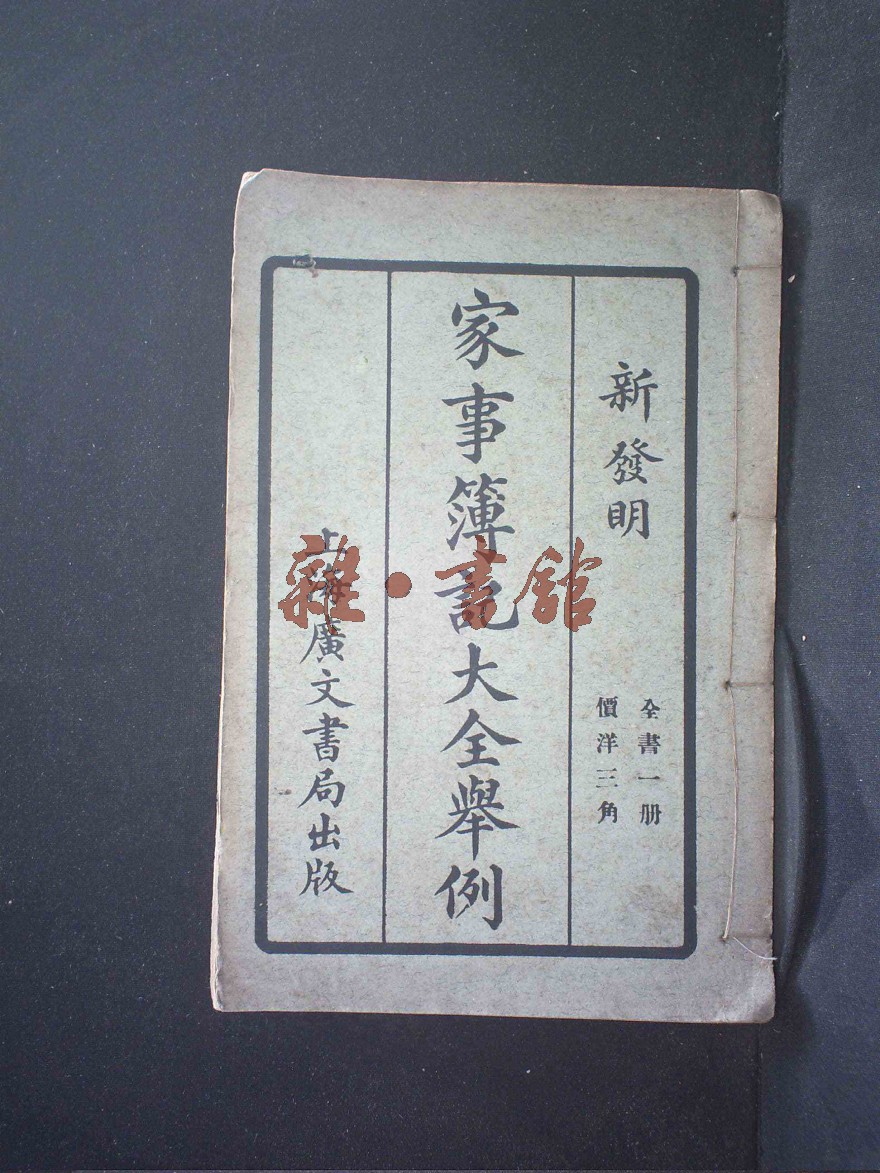 新發明
全書一册
價洋三角
家事簿記大全舉例
上海廣文書局出版
雜·書館